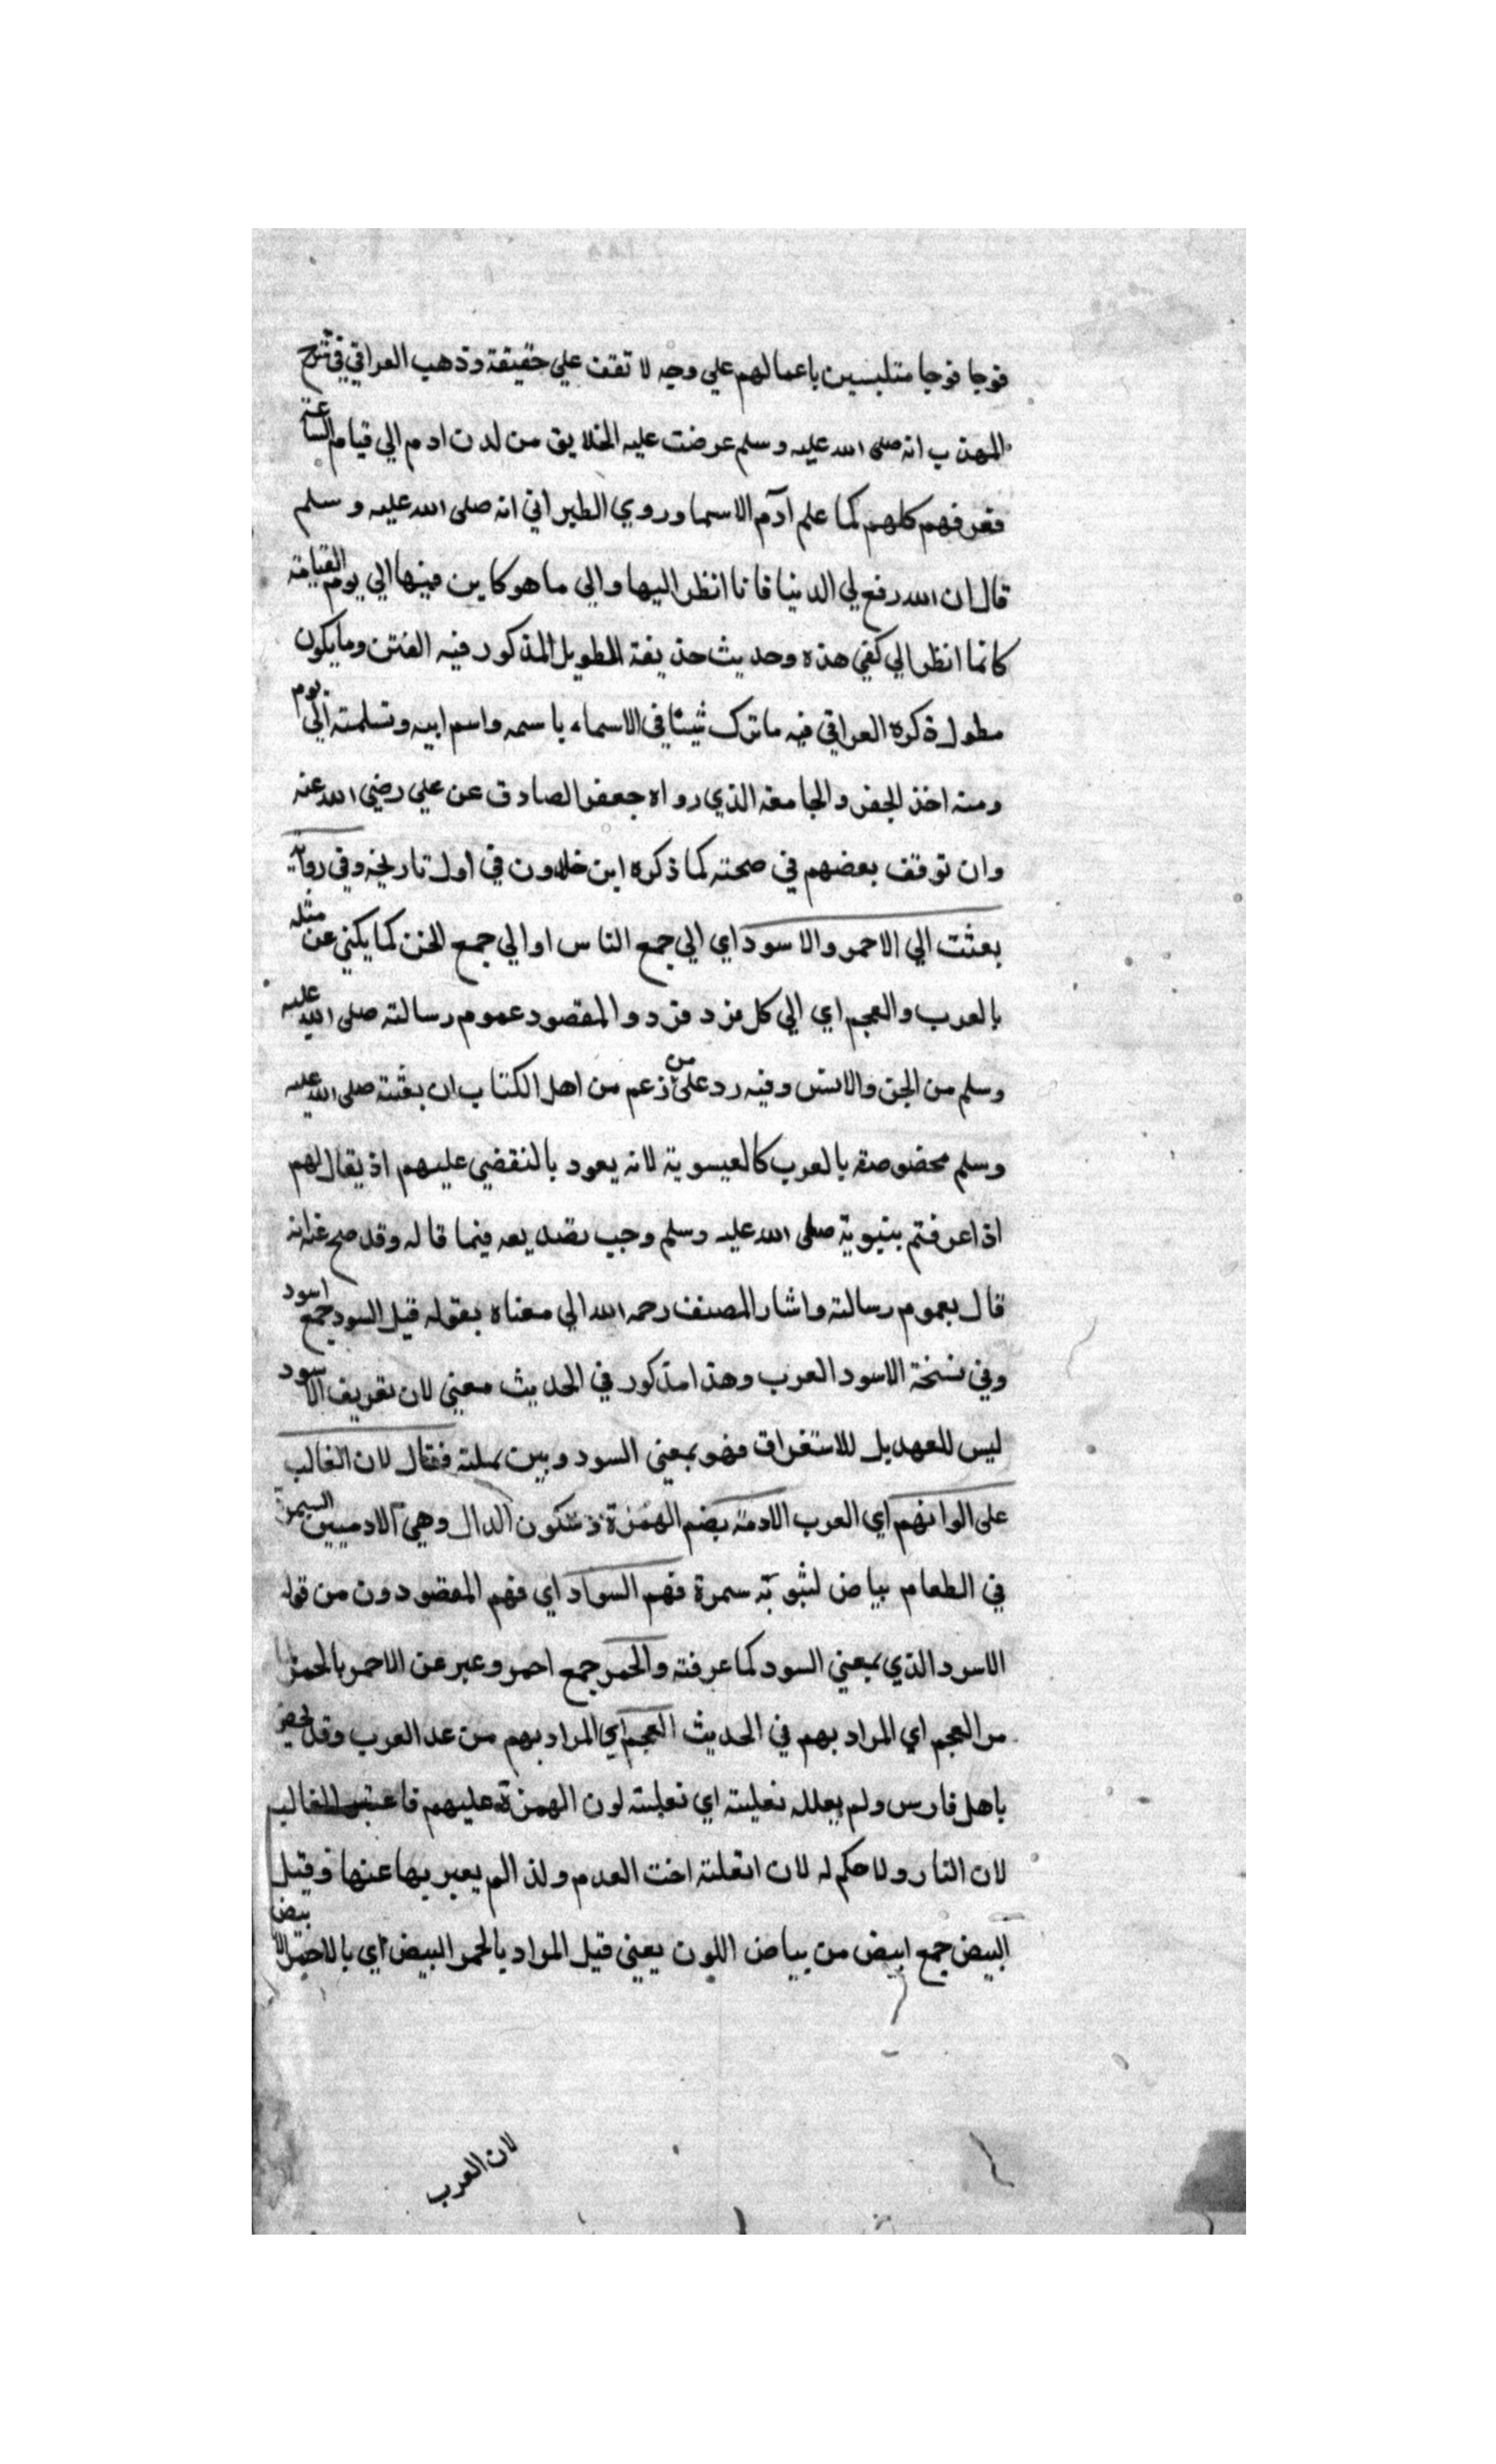 فوجا فوجا متلبسين باعمالهم علي وجه لا تقف علي حقيقة وذهب العراقي في شرح
المهذب انه صلى الله عليه وسلم عرضت عليه الخلايق من لدن ادم الي قيام الساعة
فعرفهم كلهم كما علم آدم الاسما وروي الطبراني انه صلى الله عليه وسلم
قال ان الله رفع لي الدنيا فانا انظر اليها والي ما هو كاين فيها الي يوم القيامة
كانما انظر الي كفي هذه وحديث حذيفة الطويل المذكور فيه الفتن وما يكون
مطول ذكره العراقي فيه ما ترك شيئا في الاسماء باسمه واسم ابيه وتسلمته الي يوم
ومنه اخذ الجفر والجامعة الذي رواه جعفر الصادق عن علي رضي الله عنه
وان توقف بعضهم في صحته كما ذكره ابن خلدون في اول تاريخه وفي رواية
بعثت الي الاحمر والاسود اي الي جمع الناس او الي جمع الخن كما يكني عن مثله
بالعرب والعجم اي الي كل فرد فرد والمقصود عموم رسالته صلى الله عليه
وسلم من الجن والانس وفيه رد على من زعم من اهل الكتاب ان بعثته صلى الله عليه
وسلم مخصوصة بالعرب كالعيسوية لانه يعود بالنقضي عليهم اذ يقال لهم
اذا عرفتم بنبوية صلى الله عليه وسلم وجب تصديقه فيما قاله وقد صح عنه انه
قال بعموم رسالته واشار المصنف رحمه الله الي معناه بقوله قيل السود جمع اسود
وفي نسخة الاسود العرب وهذا مذكور في الحديث معني لان تعريف الاسود
ليس للعهد بل للاستغراق فهو بمعني السود وبين علته فقال لان الغالب
على الوانهم اي العرب الادمة بضم الهمزة وسكون الدال وهي الادميين السمرة
في الطعام بياض لشوبة سمرة فهم السواد اي فهم المقصودون من قوله
الاسود الذي بمعني السود كما عرفته والحمر جمع احمر وعبر عن الاحمر بالحمر
من العجم اي المراد بهم في الحديث العجم اي المراد بهم من عد العرب وقد يخص
باهل فارس ولم يعلله تغليبته اي تغلبته لون الهمزة عليهم فاعتبر الغالب
لان النار ولا حكم له لان القلته اخت العدم ولذا لم يعبر بها عنها وقيل
البيض جمع ابيض من بياض اللون يعني قيل المراد بالحمر البيض اي بالاحمر الابيض
لان العرب